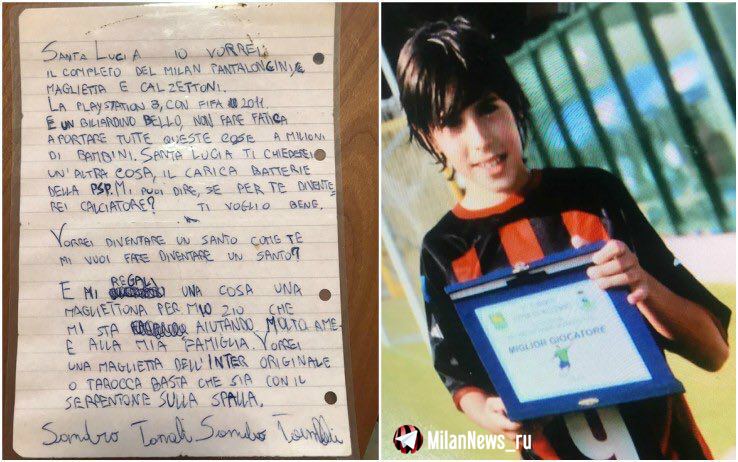 SANTA LUCIA IO VORREI:
IL COMPLETO DEL MILAN PANTALONCINI, E
MAGLIETTA E CALZETTONI.
LA PLAYSTATION 3, CON FIFA 2011.
E UN BILIARDINO BELLO, NON FARE FATICA
A PORTARE TUTTE QUESTE COSE A MILIONI
DI BAMBINI. SANTA LUCIA TI CHIEDEREI
UN'ALTRA COSA, IL CARICA BATTERIE
DELLA PSP. MI PUOI DIRE, SE PER TE DIVENTE-
REI CALCIATORE? TI VOGLIO BENE.
VORREI DIVENTARE UN SANTO COME TE
MI VUOI FARE DIVENTARE UN SANTO?
E MI REGALA UNA COSA UNA
MAGLIETTONA PER MIO ZIO CHE
MI STA AIUTANDO MOLTO A ME
E ALLA MIA FAMIGLIA. VORREI
UNA MAGLIETTA DELL'INTER ORIGINALE
O TAROCCA BASTA CHE SIA CON IL
SERPENTONE SULLA SPALLA.
Sandro Tonali Sandro Tonali
MIGLIOR GIOCATORE
9
MilanNews_ru